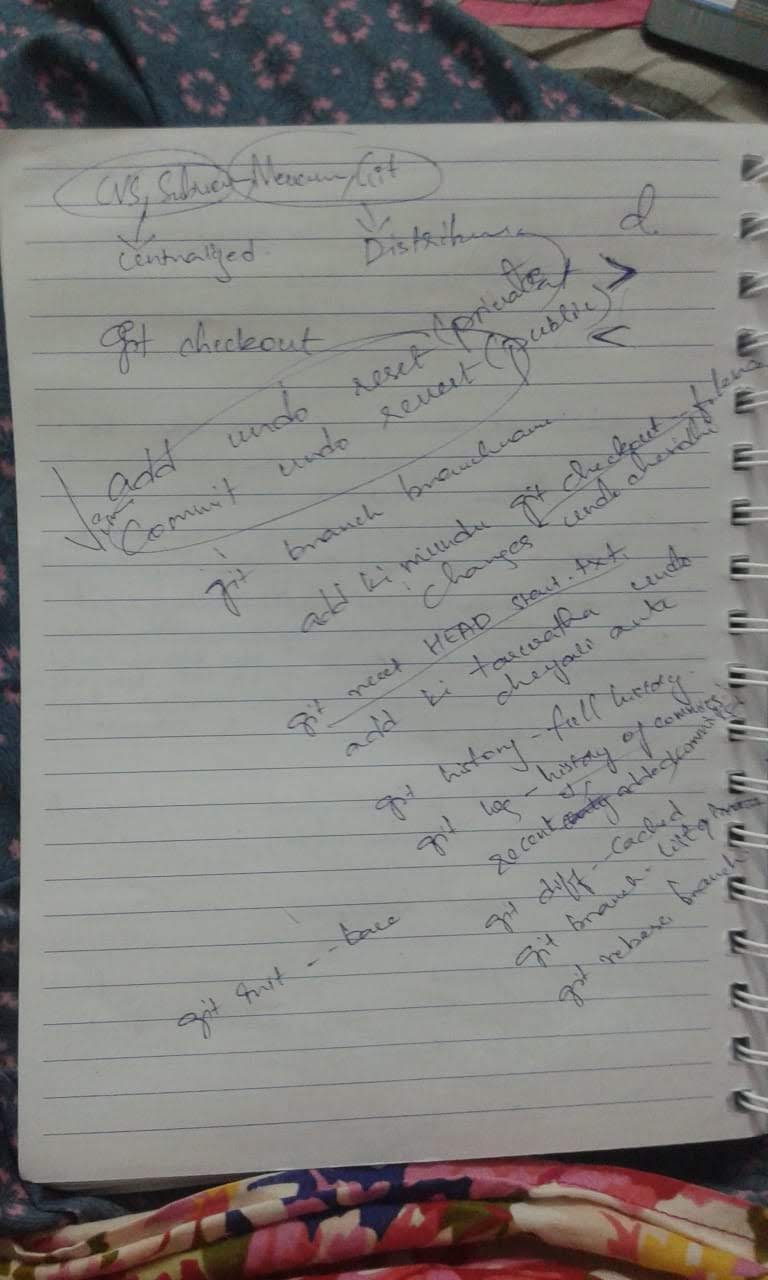 CVS, Subver Mercu, Git
Centralized Distribu
d.
git checkout
>
<
add undo reset (private)
Commit undo revert (public)
git branch branchname
add ki mundu git checkout - filena
changes undo
git reset HEAD start.txt
add ki tarvatha undo
cheyali ante
git history - full history
git log - history of commits
recent added
git diff --cached
git branch - list of
git rebase branch
git init -- bare